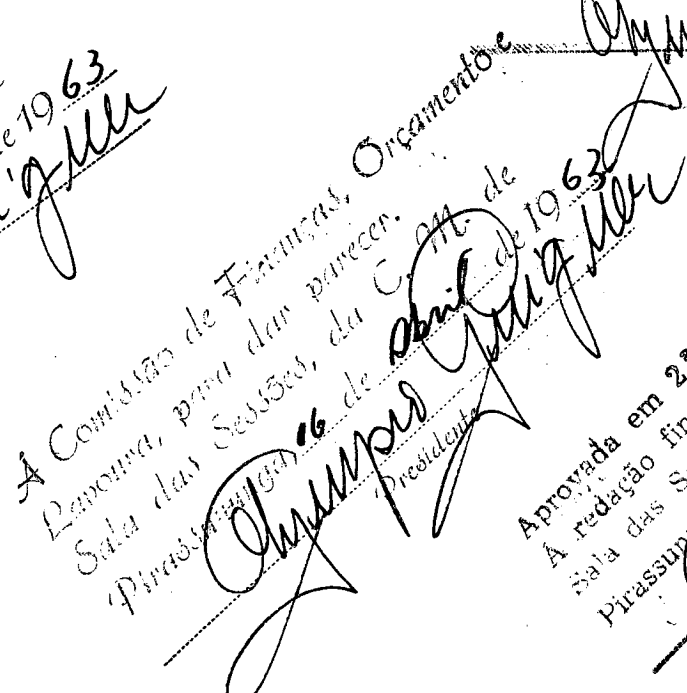 de 19 63
À Comissão de Finanças, Orçamento e
Lavoura, para dar parecer.
Sala das Sessões, da C. M. de
Pirassununga, 16 de abril de 1963
Presidente
Aprovada em 2ª
À redação fin
Sala das S
Pirassun